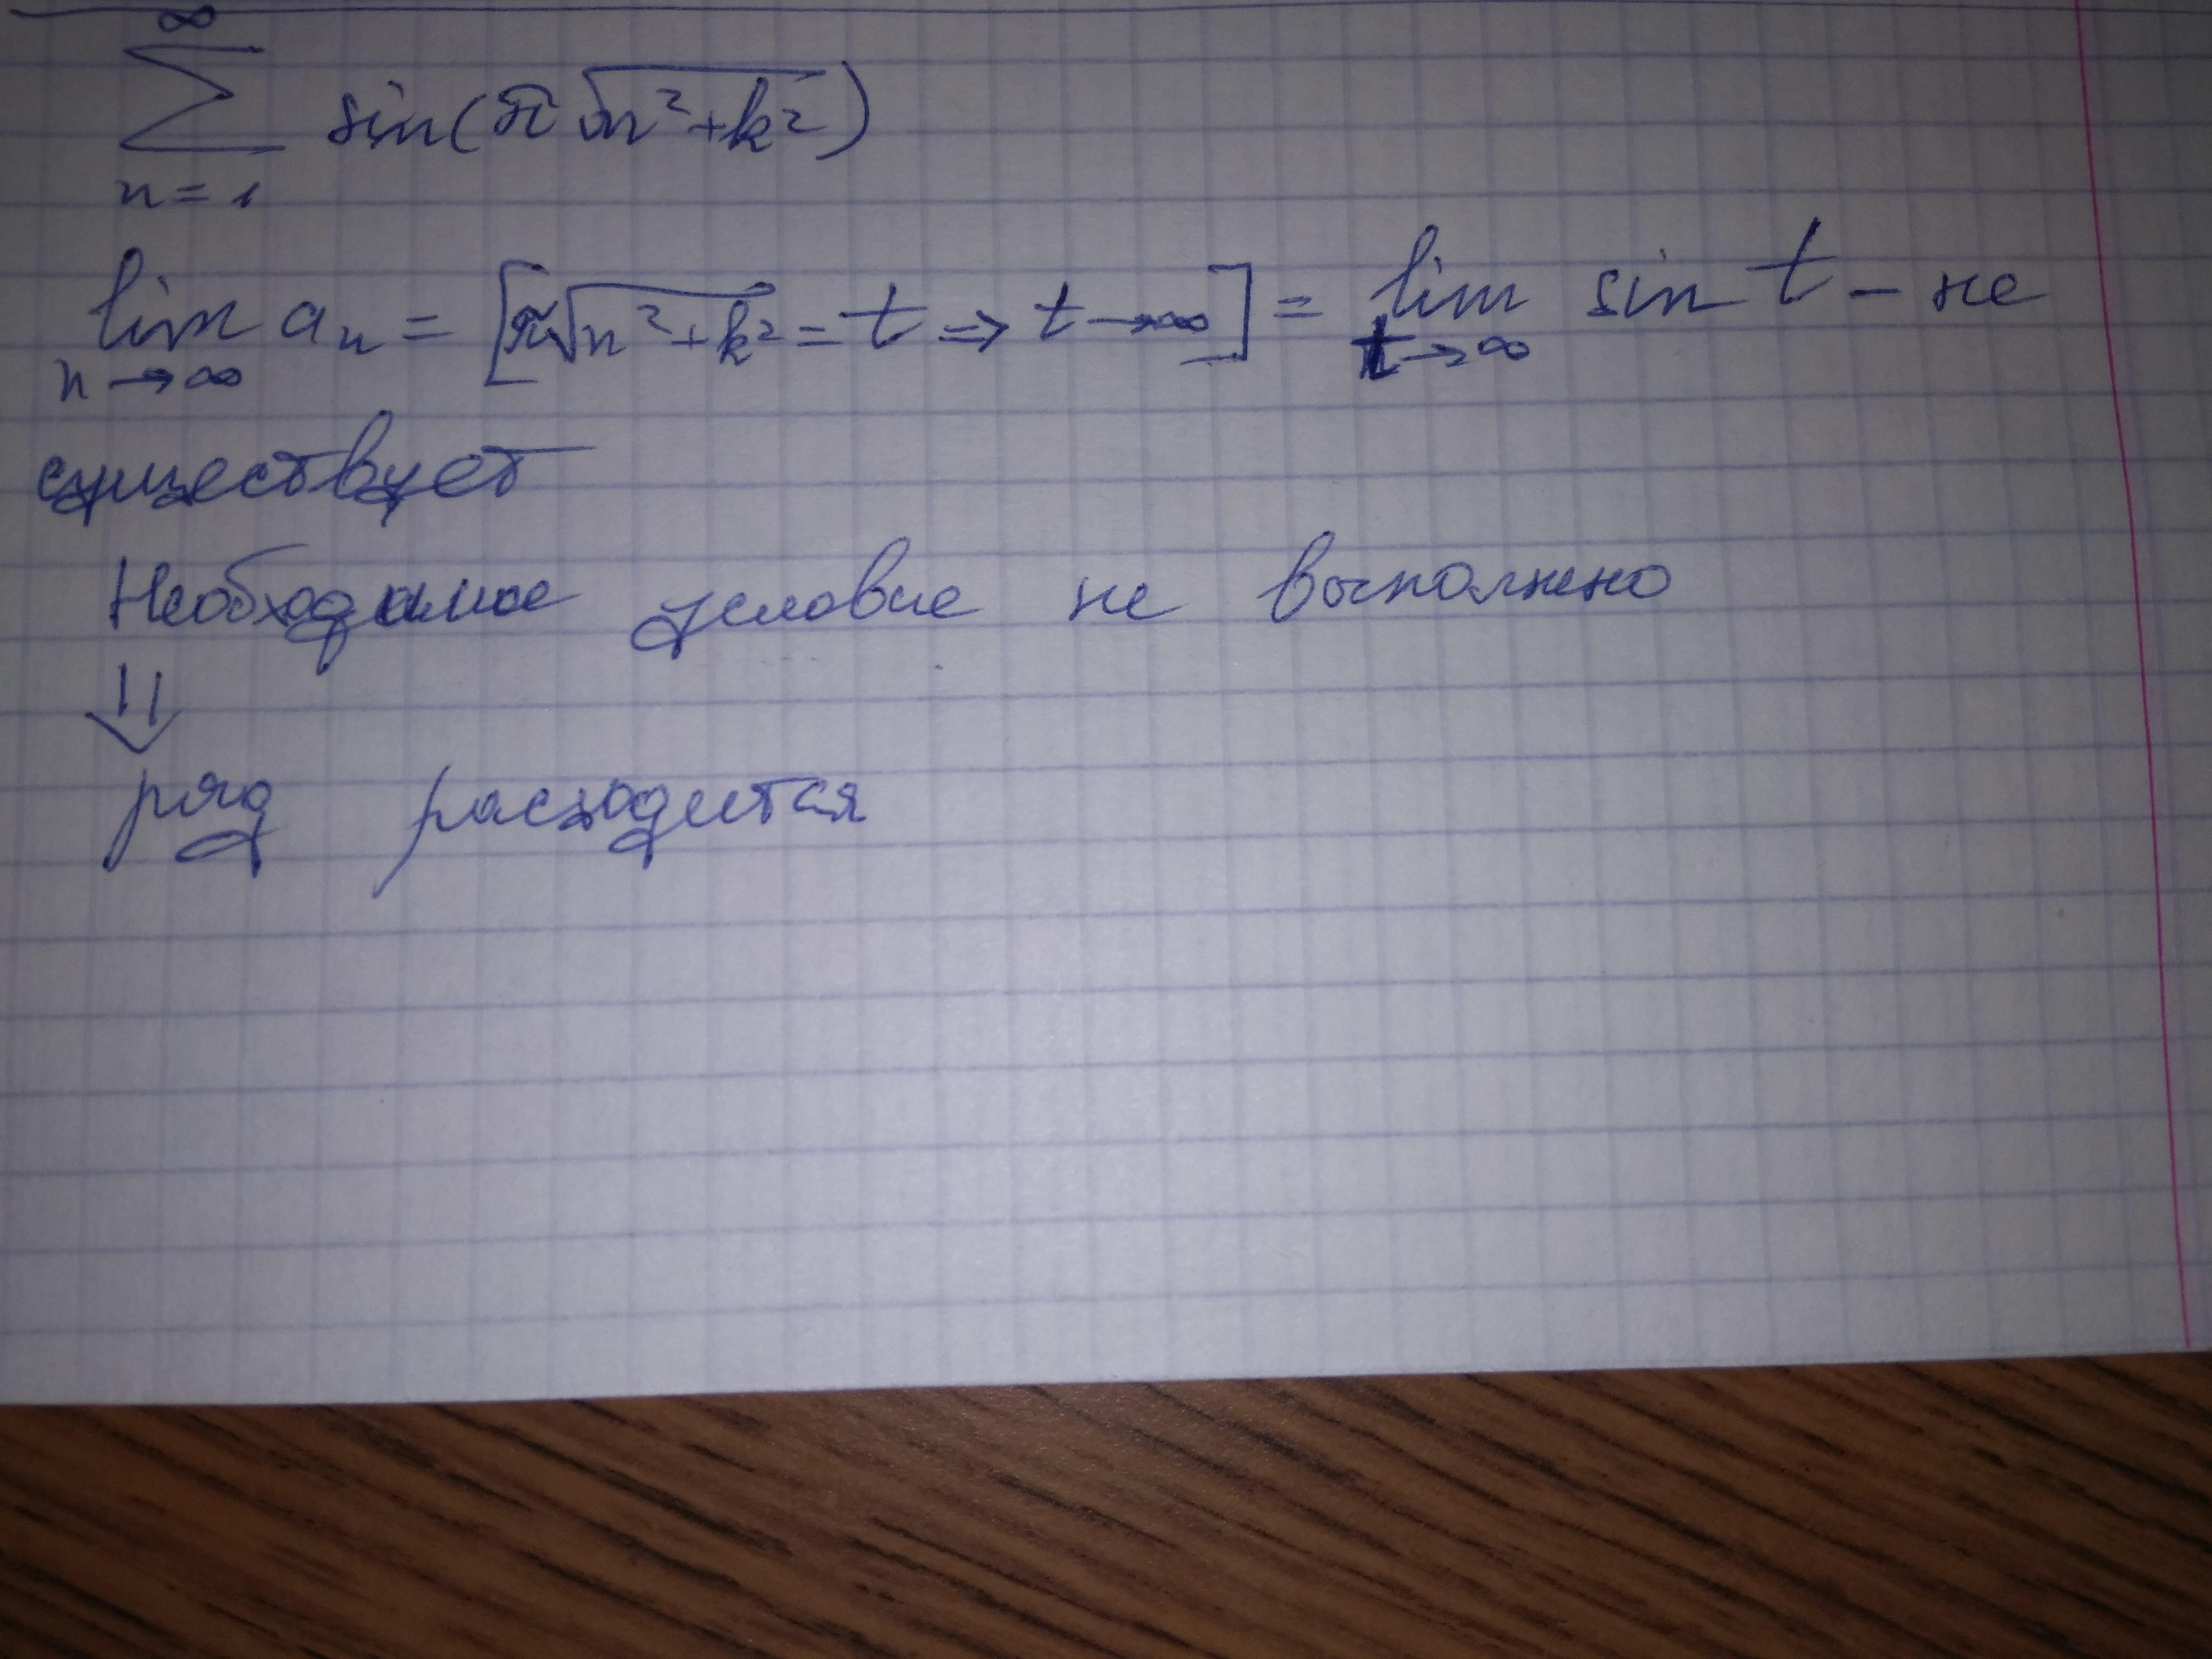 ∞
∑ sin(π√(n²+k²))
n=1
lim aₙ = [π√(n²+k²) = t ⇒ t→∞] = lim sin t – не
n→∞ t→∞
существует
Необходимое условие не выполнено
⇓
ряд расходится